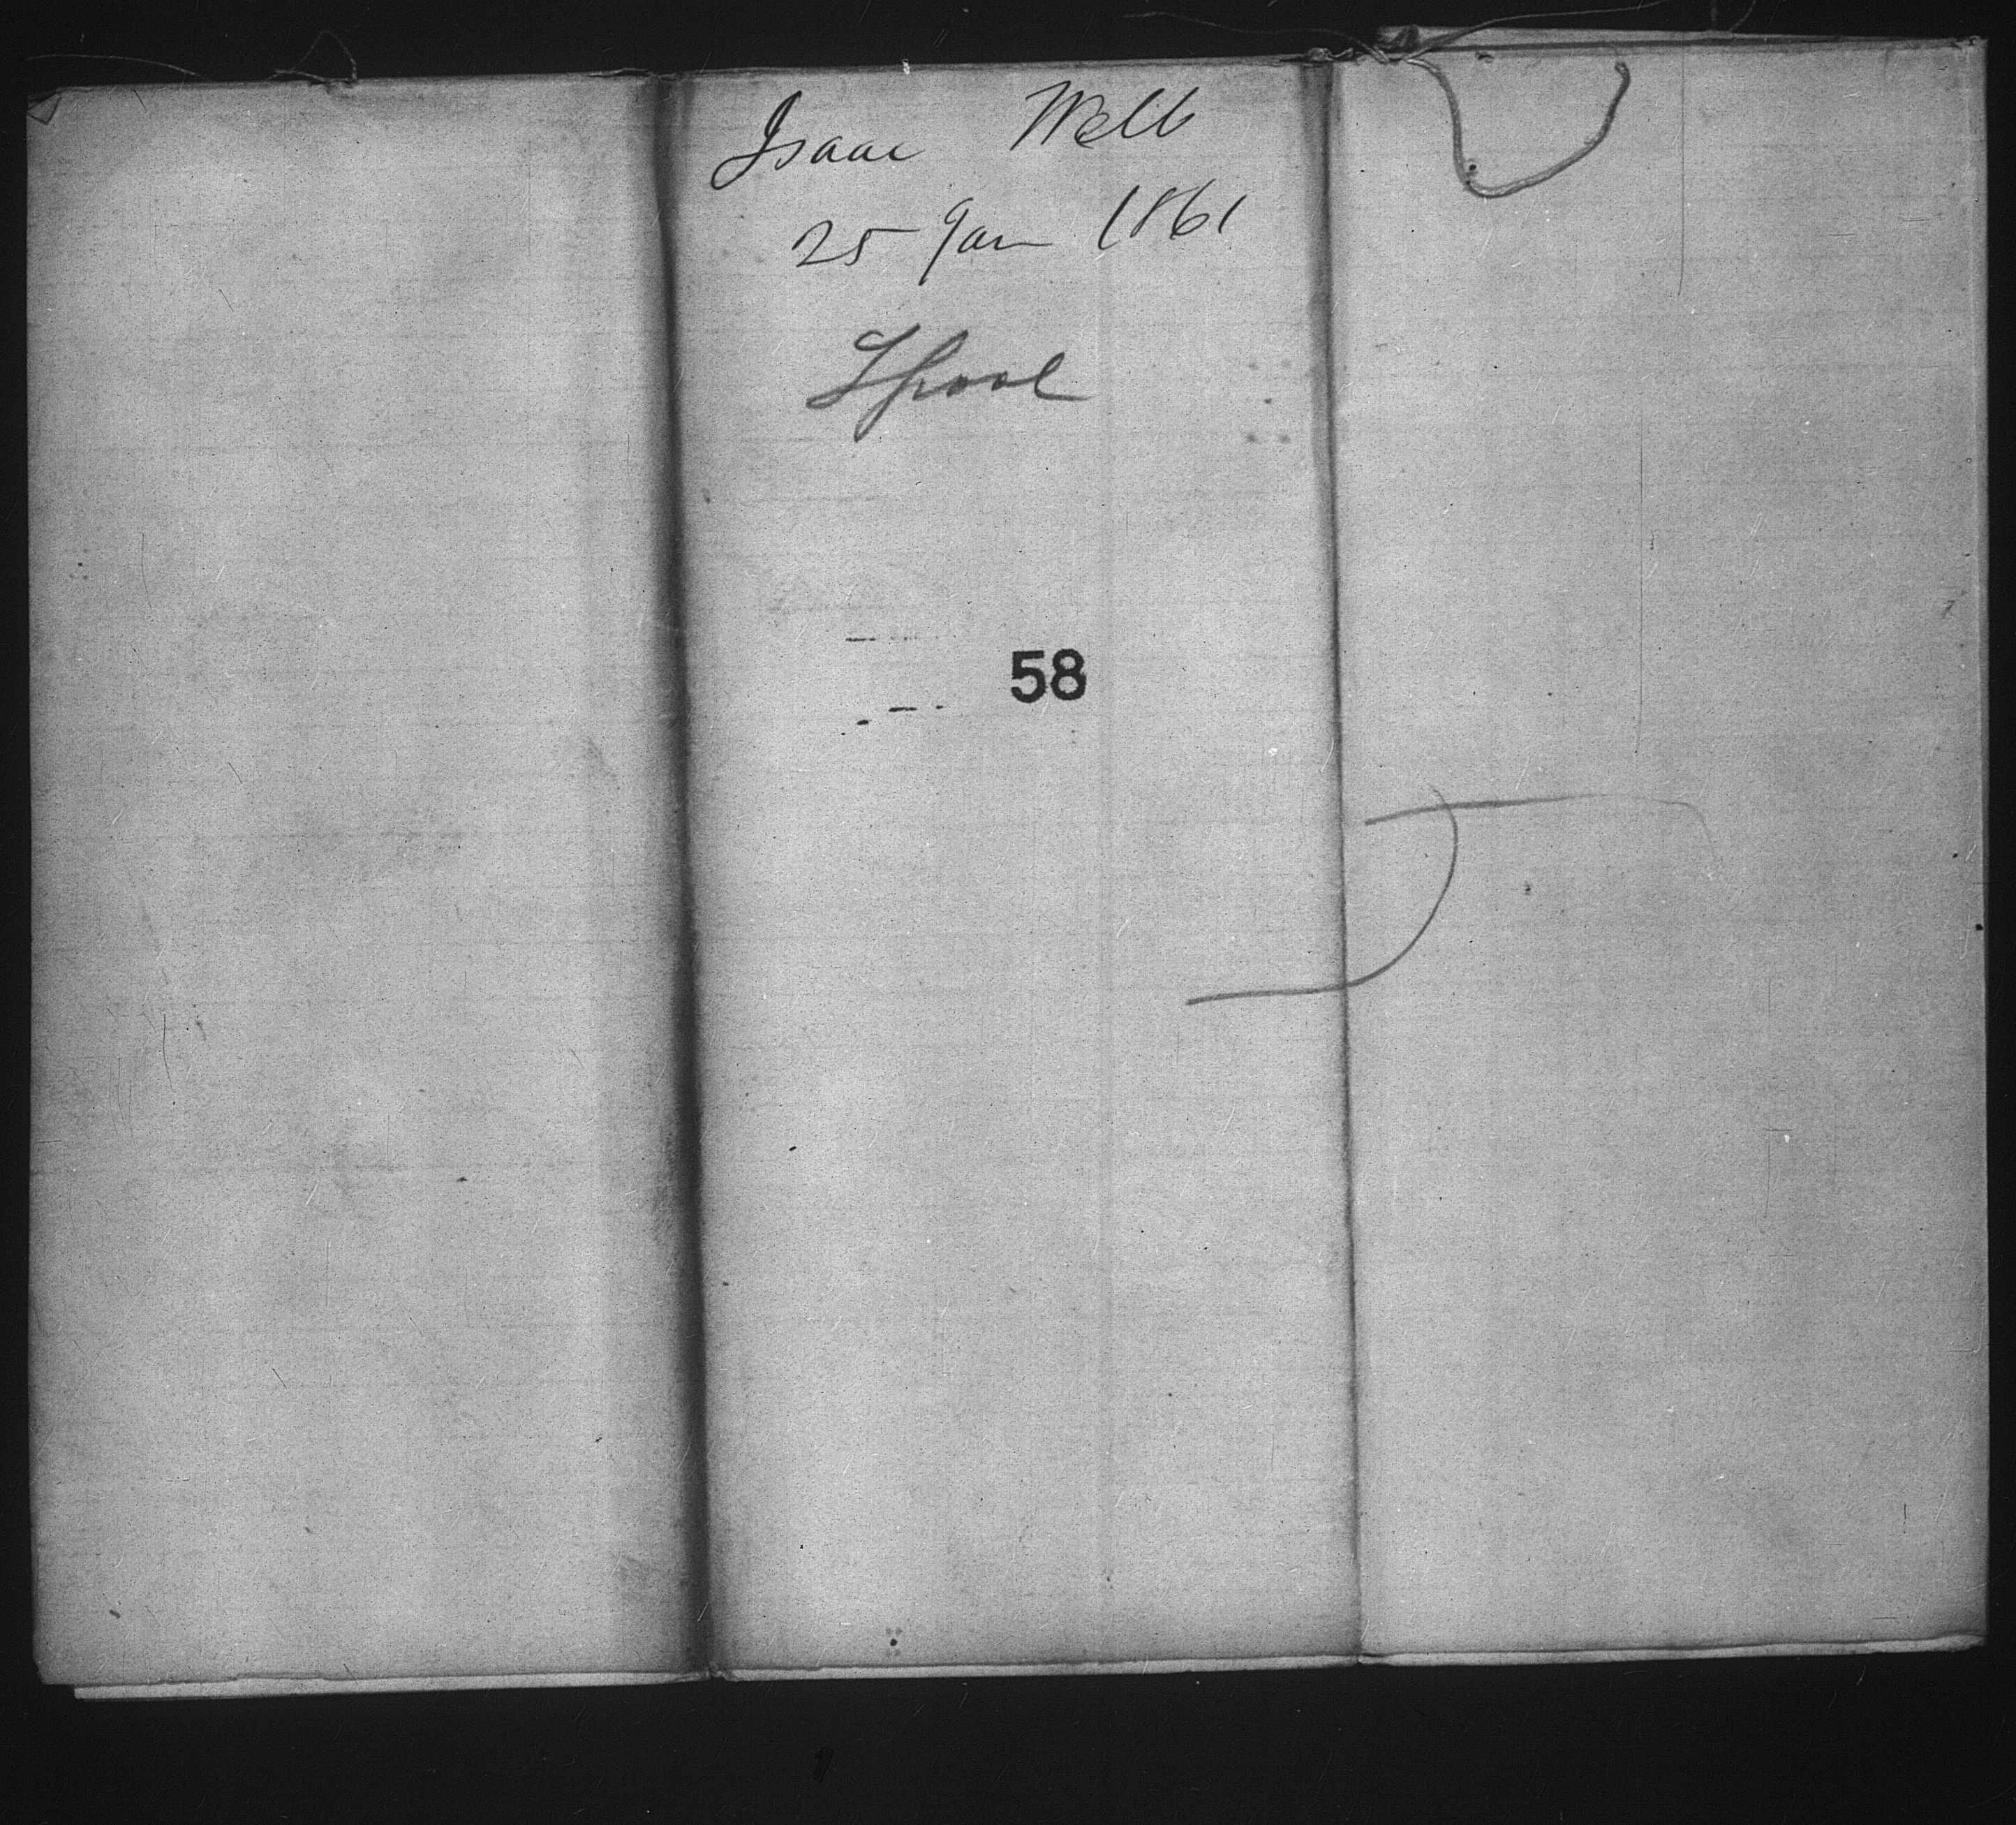 Isaac Webb
25 Jan 1861
Lpool
58